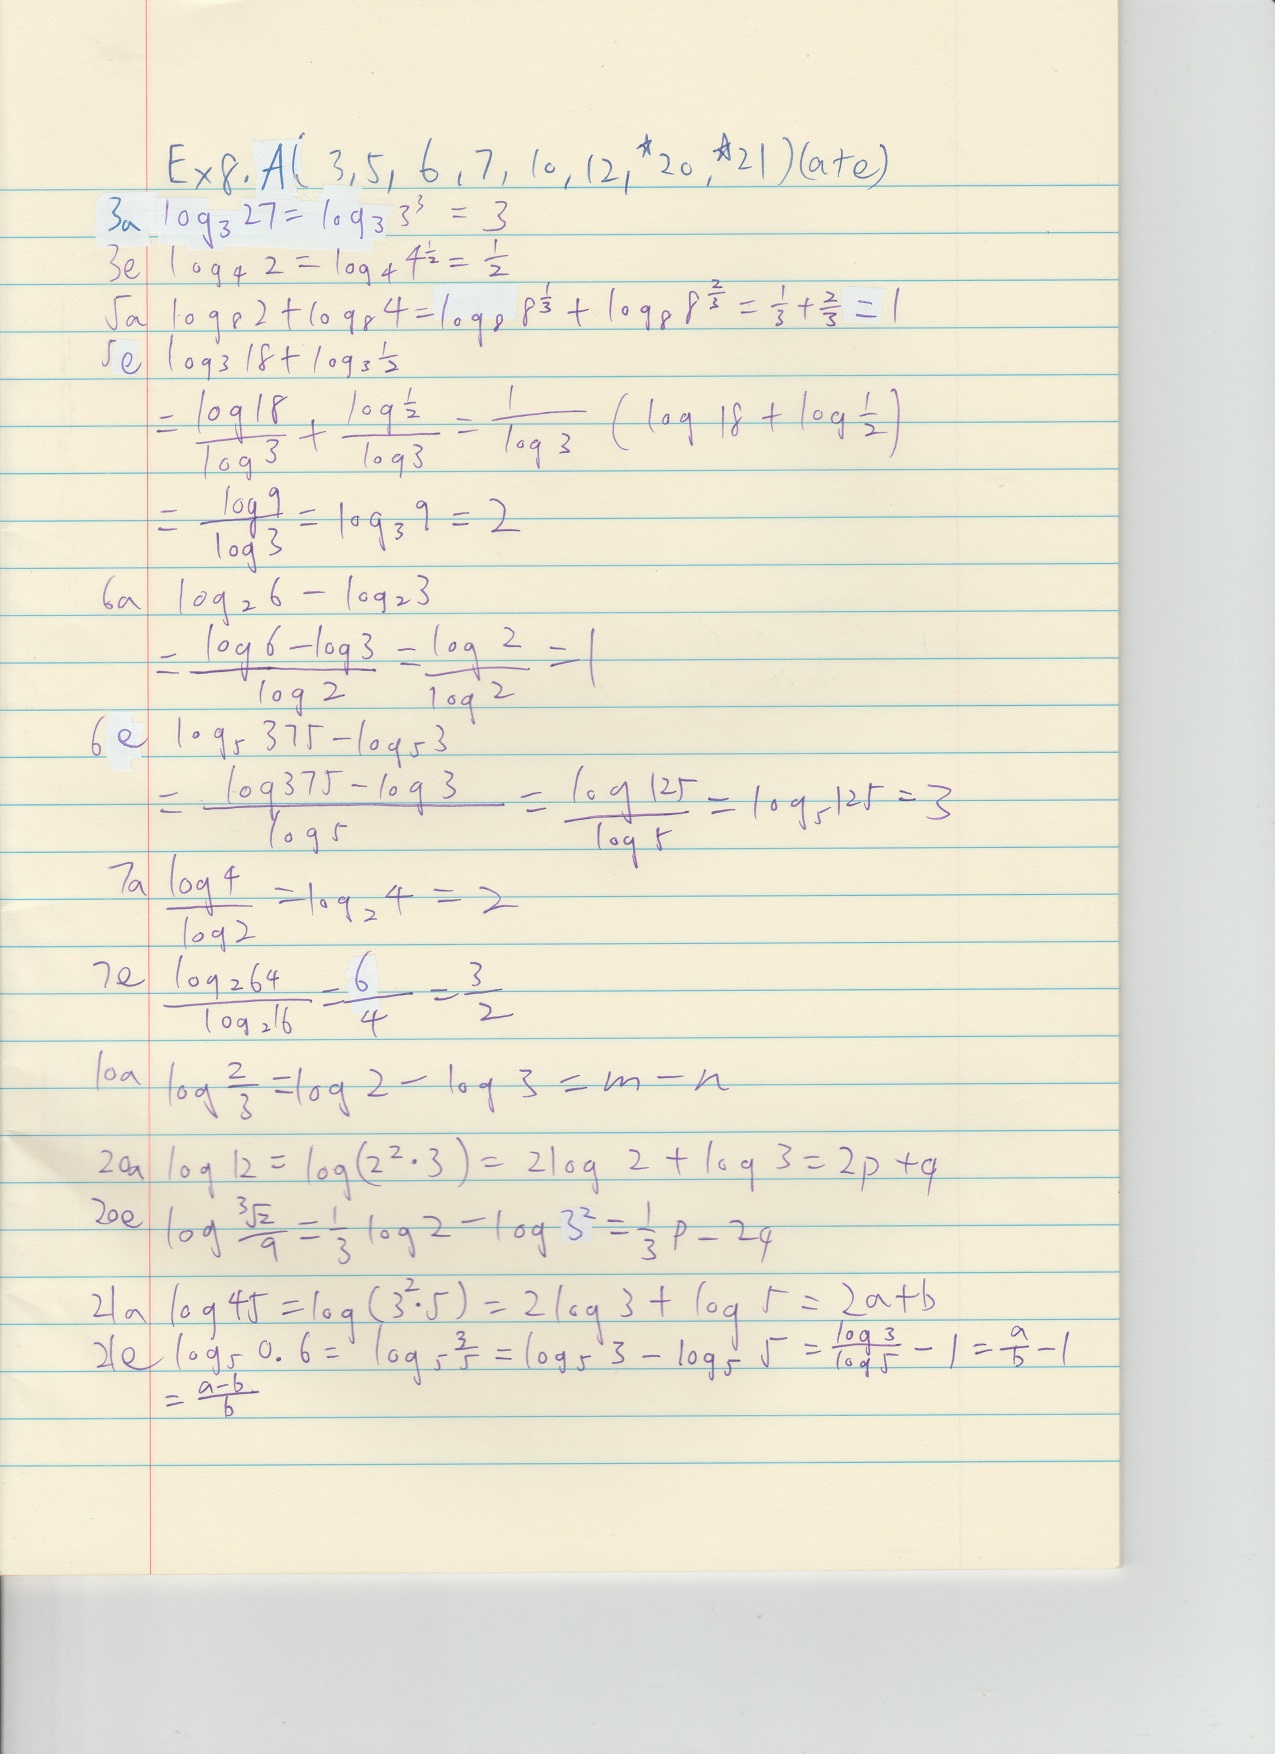 Ex8.A(3,5,6,7,10,12,*20,*21)(a+e)
3a log₃27 = log₃3³ = 3
3e log₄2 = log₄4^½ = ½
5a log₈2 + log₈4 = log₈8^⅓ + log₈8^⅔ = ⅓ + ⅔ = 1
5e log₃18 + log₃½
= log18/log3 + log½/log3 = 1/log3 (log 18 + log ½)
= log9/log3 = log₃9 = 2
6a log₂6 − log₂3
= (log6 − log3)/log2 = log2/log2 = 1
6e log₅375 − log₅3
= (log375 − log3)/log5 = log125/log5 = log₅125 = 3
7a log4/log2 = log₂4 = 2
7e log₂64/log₂16 = 6/4 = 3/2
10a log 2/3 = log2 − log3 = m − n
20a log12 = log(2²·3) = 2log2 + log3 = 2p + q
20e log ³√2/9 = ⅓log2 − log3² = ⅓p − 2q
21a log45 = log(3²·5) = 2log3 + log5 = 2a+b
21e log₅0.6 = log₅3/5 = log₅3 − log₅5 = log3/log5 − 1 = a/b − 1
= (a−b)/b